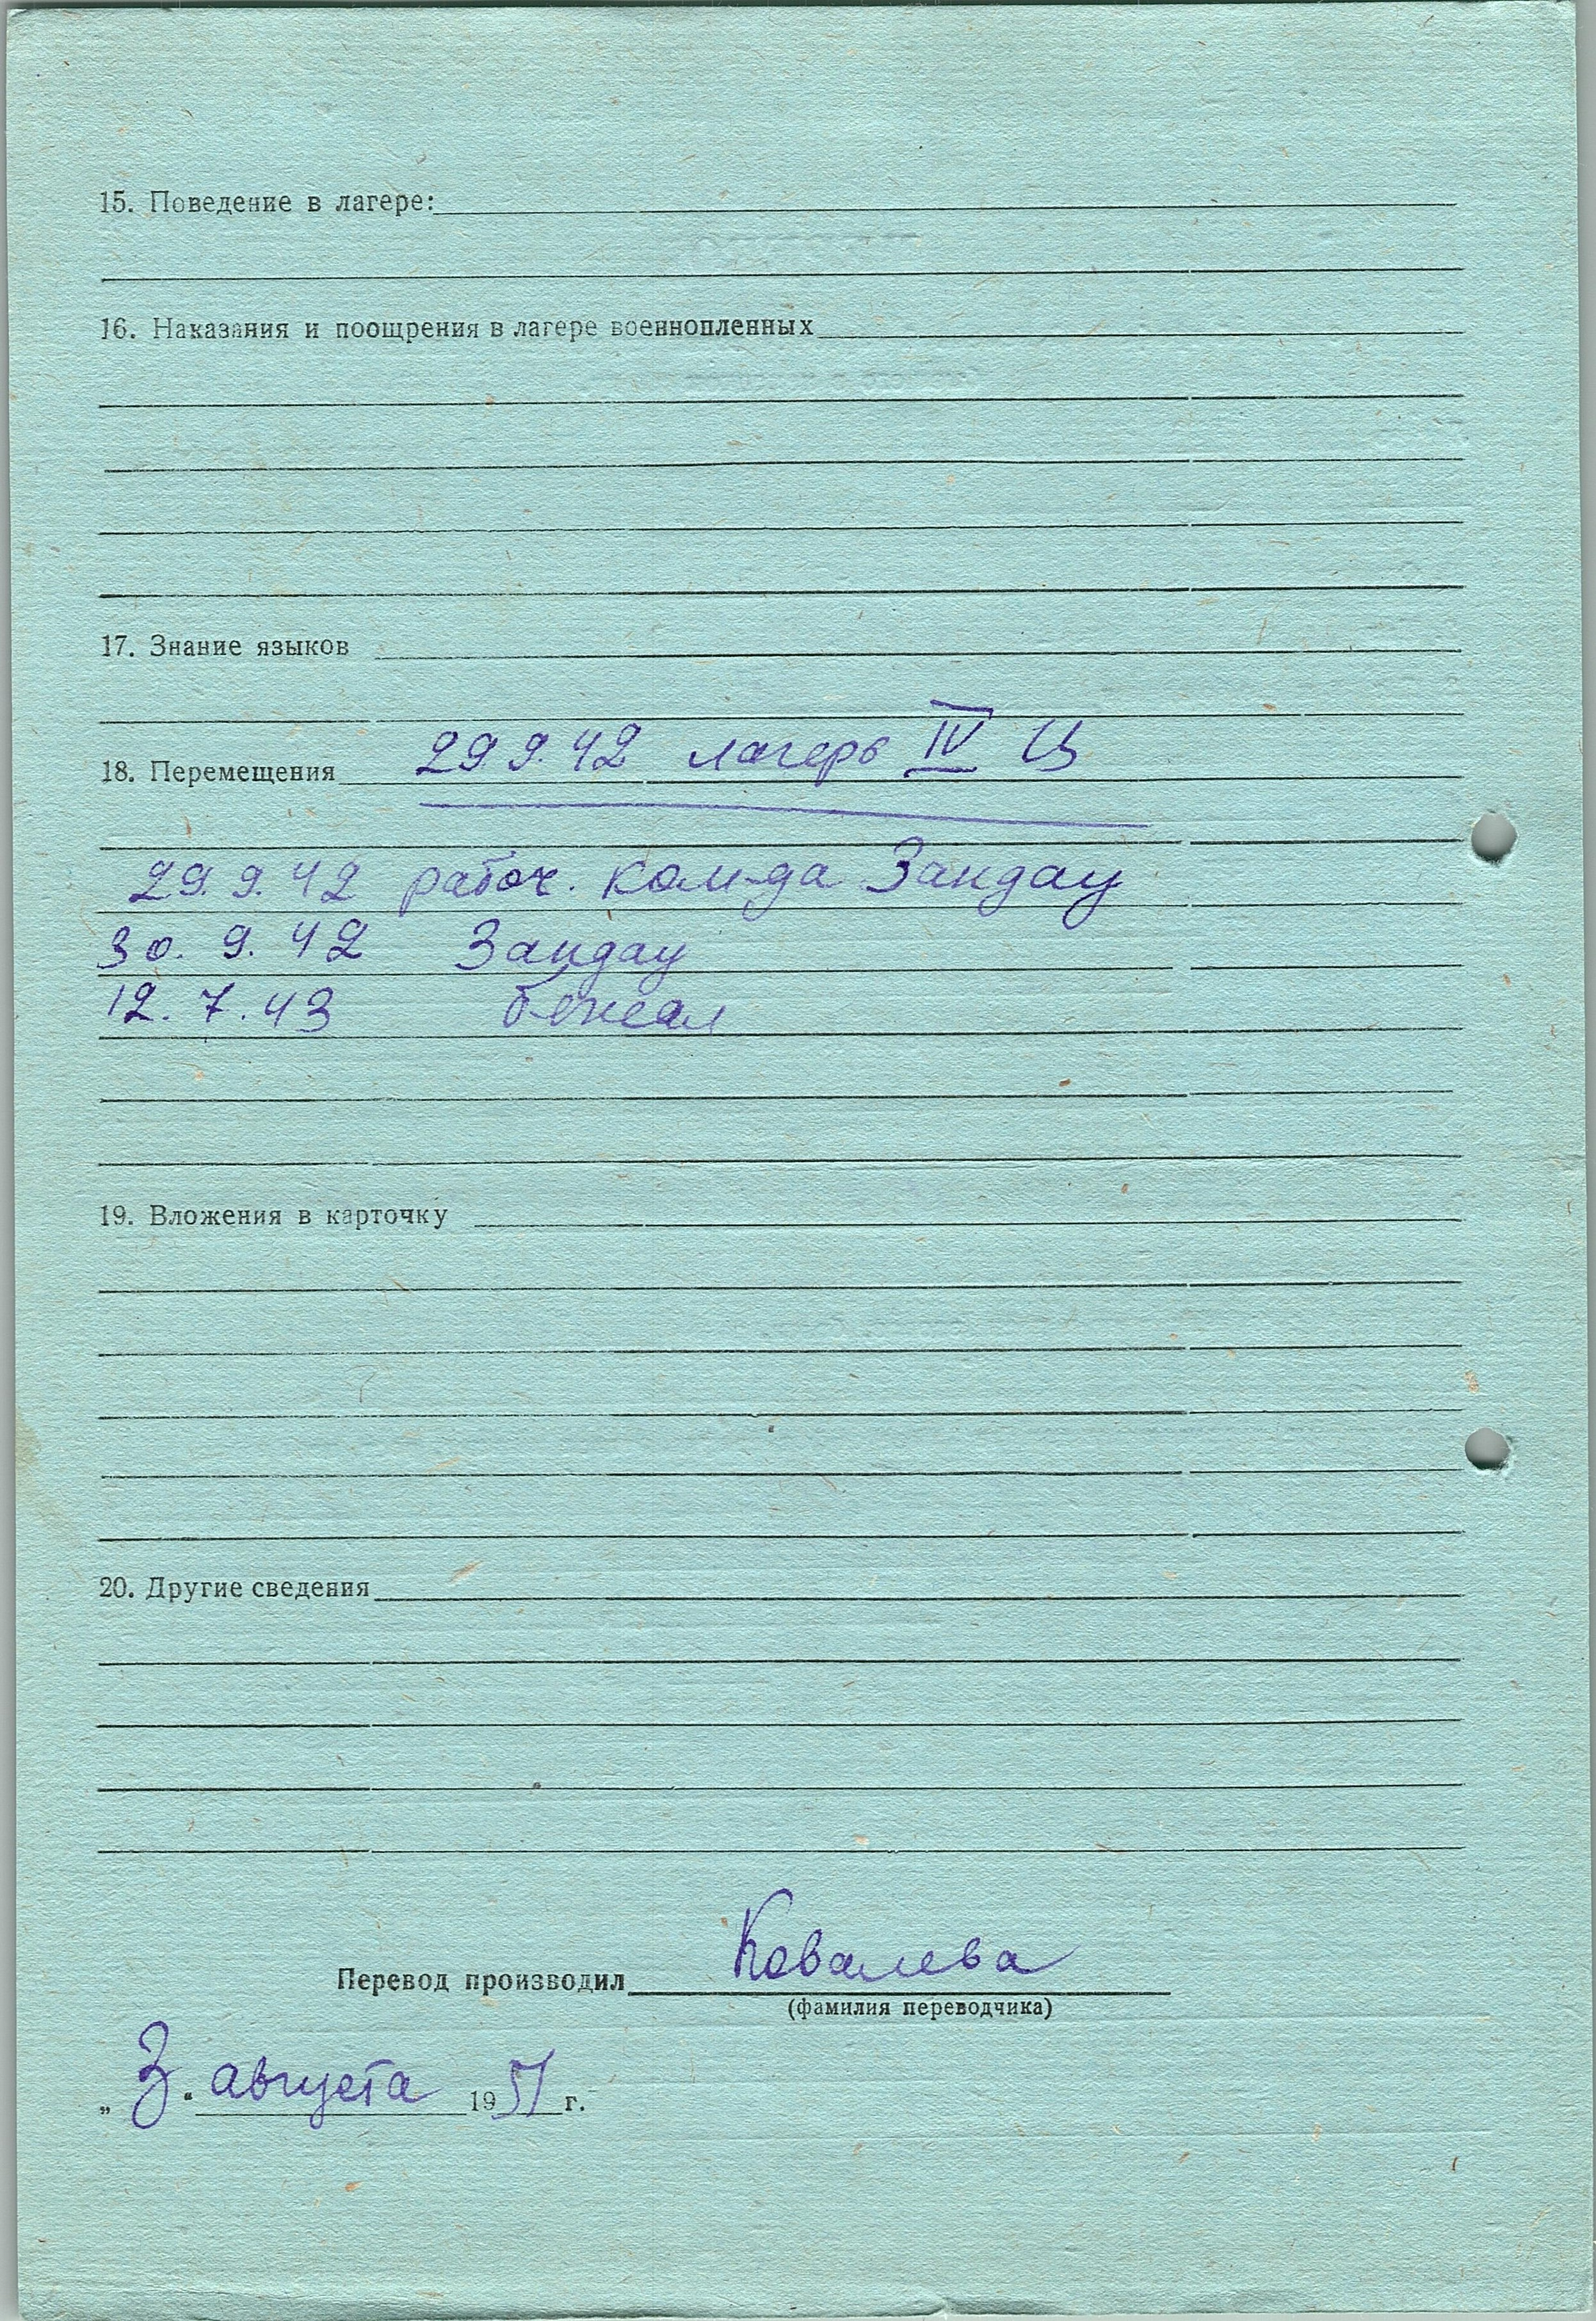 15. Поведение в лагере:
16. Наказания и поощрения в лагере военнопленных
17. Знание языков
18. Перемещения 29 9. 42 лагерь IV Ц
29. 9. 42 рабоч. ком-да Зандау
30. 9. 42 Зандау
12. 7. 43 бежал
19. Вложения в карточку
20. Другие сведения
Перевод производил Ковалева
(фамилия переводчика)
„3." августа 1951 г.